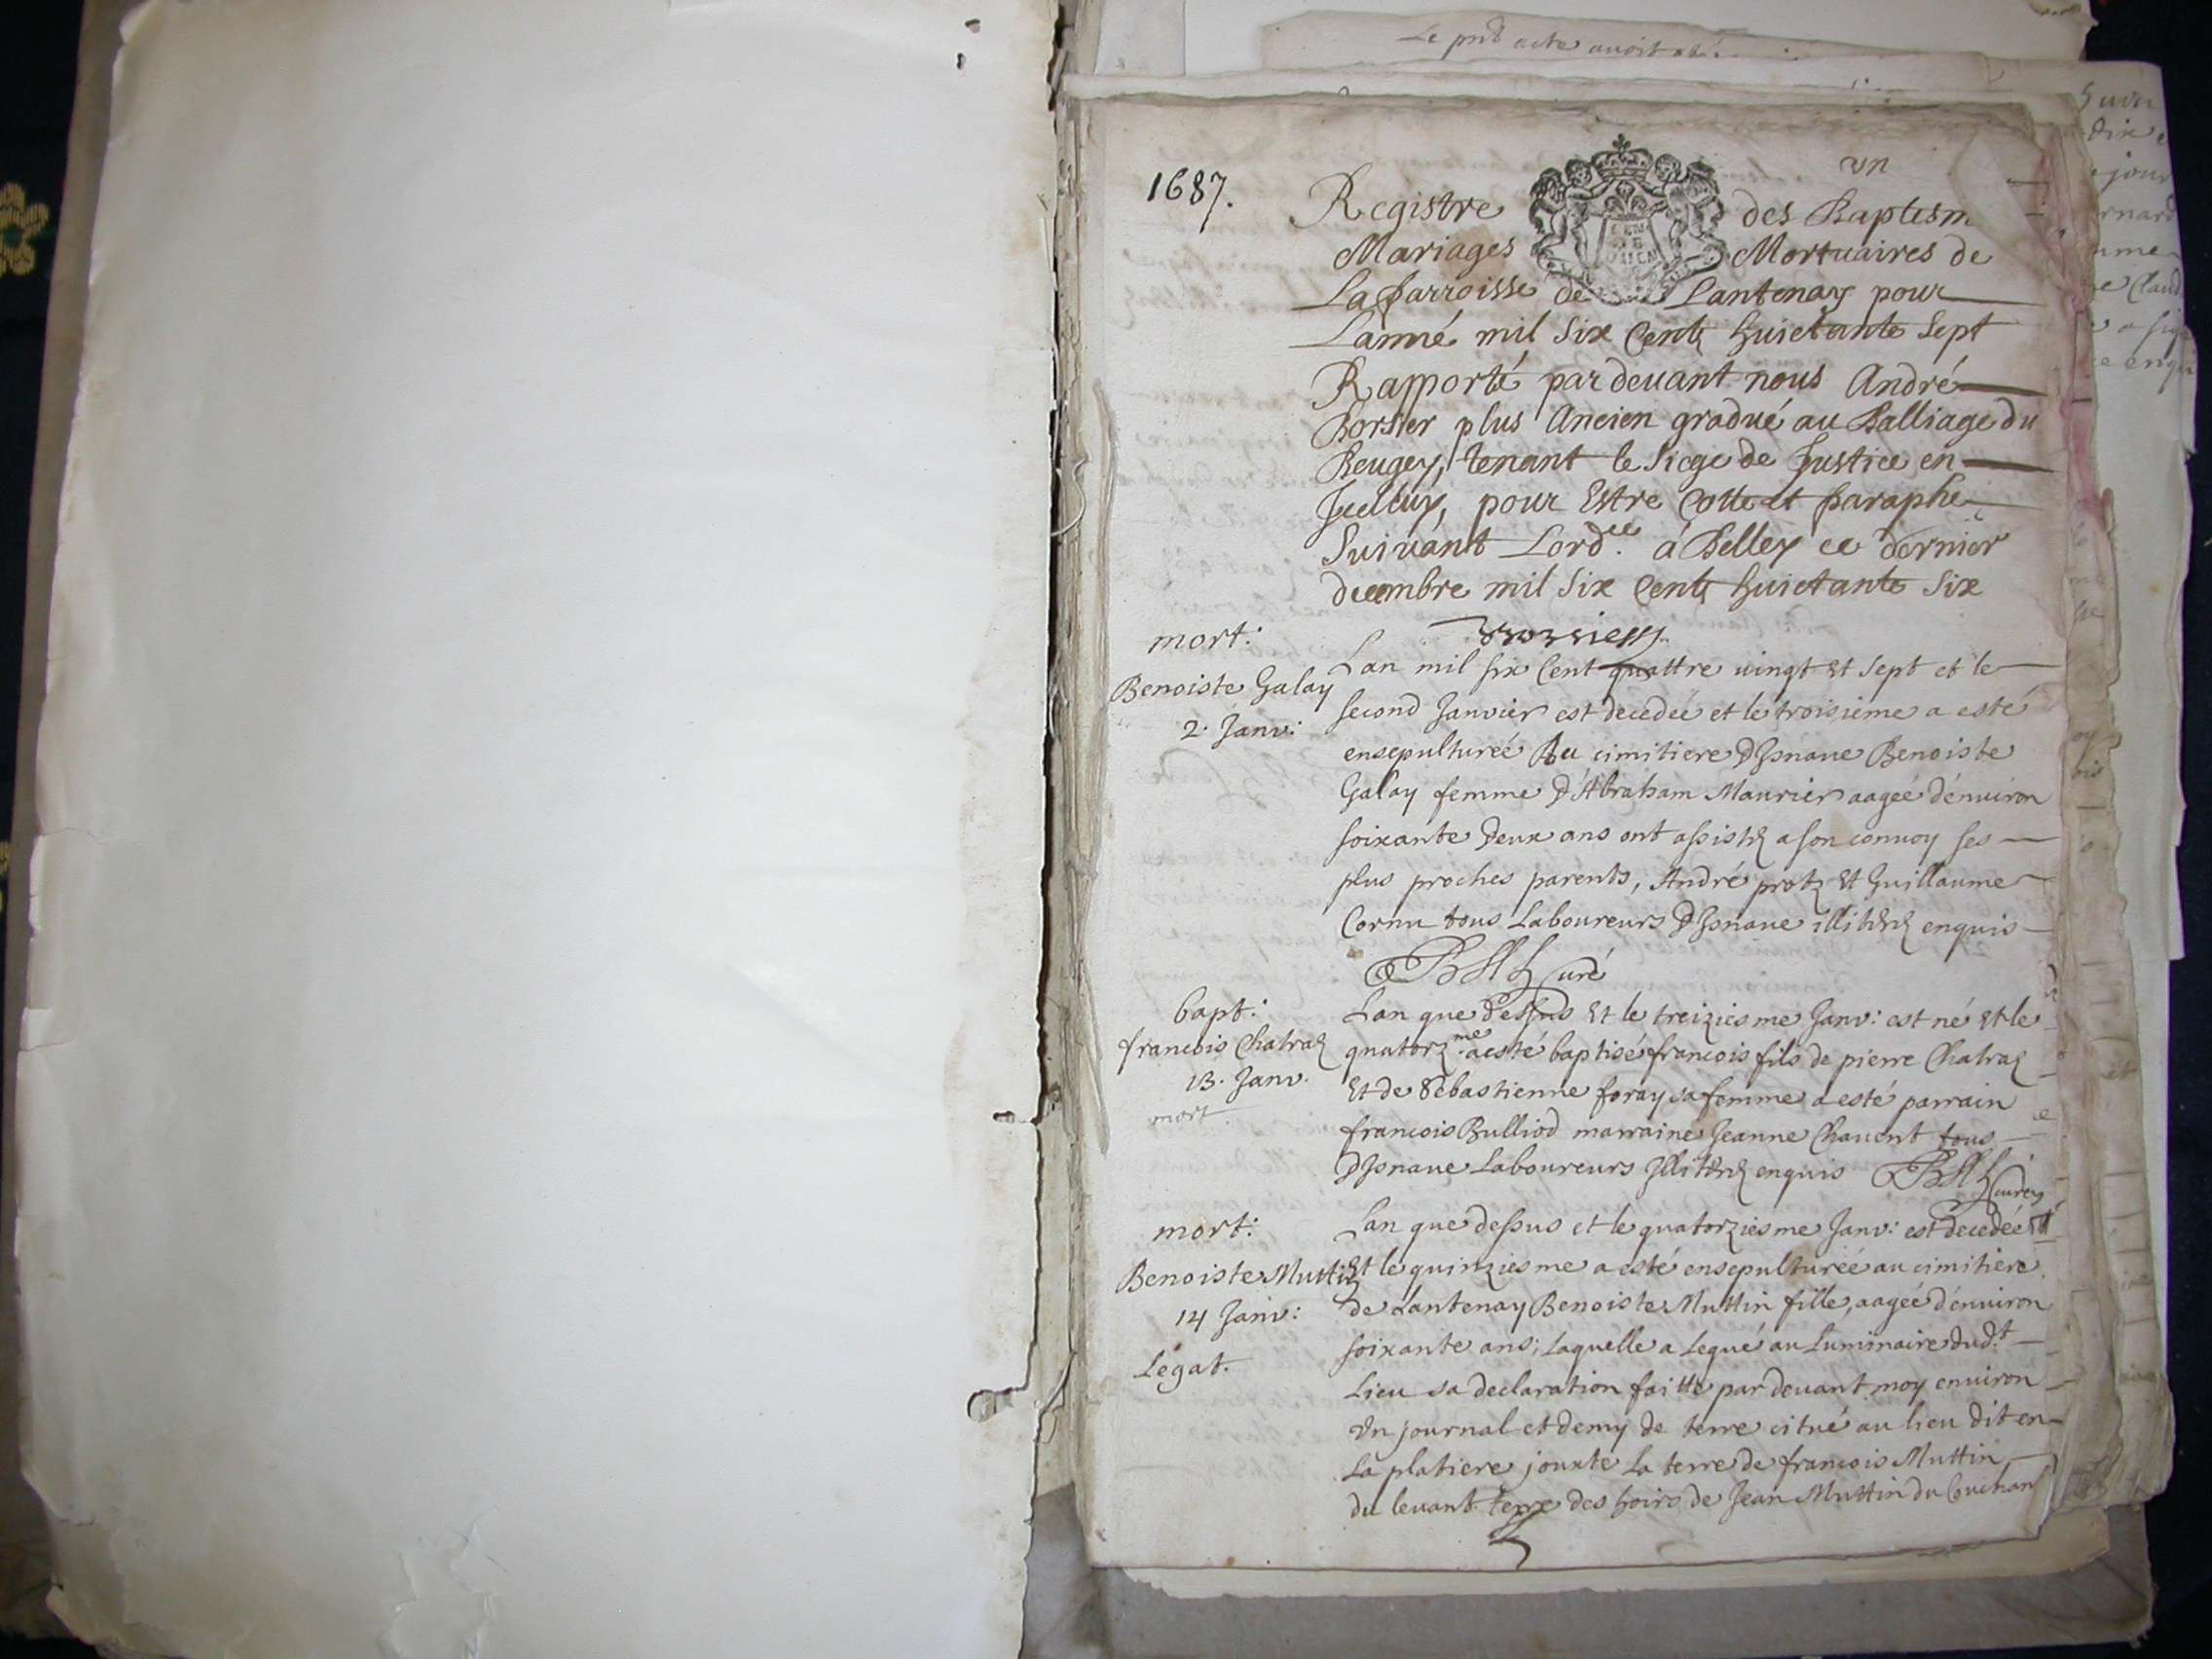 Le pnt acte avoit
1687.
vn
Registre des Baptesm
Mariages Mortuaires de
La parroisse de Lantenay pour
Lanné mil Six Centz huictante Sept
Rapporté pardeuant nous André
Borsier plus Ancien gradué au Balliage du
Beugey, tenant le Siege de Justice en
Jcelluy, pour Estre Cotte et paraphe
Suiuant Lord.ce á Belley ce dernier
decembre mil Six Centz huictante Six
mort:
Benoiste Galay
2. Janv:
Lan mil six Cent quattre uingt et Sept et le
second Januier est decedeé et le troisieme a esté
ensepultureé Au cimitiere d'Jsnaue Benoiste
Galay femme d'Abraham Maurier aageé d'enuiron
soixante deux ans ont assistez a son conuoy ses
plus proches parents, André protz et Guillaume
Cornu tous Laboureurs d'Jsnaue illiterez enquis
Curé
bapt:
francois Chatraz
13. Janv.
mort
Lan que dessus et le treiziesme Janv: est né et le
quatorz.me a esté baptisé francois fils de pierre Chatraz
et de Sebastienne foray sa femme a esté parrain
francois Bulliod marraine Jeanne Chauent tous
d'Jsnaue Laboureurs Jlliterez enquis
Curey
mort:
Benoiste Muttin
14 Janv:
Legat.
Lan que dessus et le quatorziesme Janv: est decedée
Et le quinziesme a esté ensepulturée au cimitiere
de Lantenay Benoiste Muttin fille, aageé d'enuiron
soixante ans; Laquelle a Legué au Luminaire dud.t
Lieu sa declaration faitte par deuant moy enuiron
Vn journal et demy de terre citué au lieu dit en
La platiere jouxte La terre de francois Muttin
du leuant terre des hoirs de Jean Muttin du Couchan